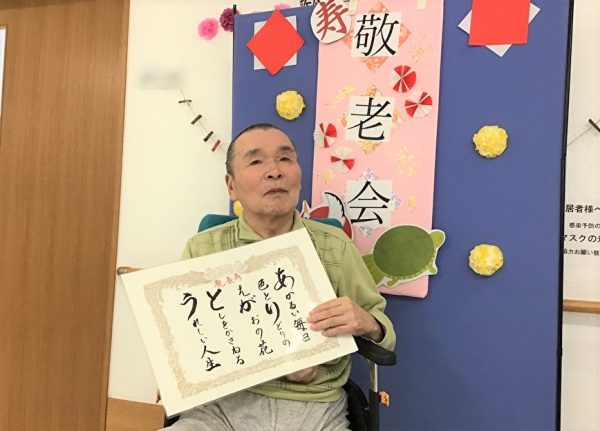 寿
敬老会
あかるい毎日
色とりどりの
えがおの花
としをかさねる
うれしい人生
祝長寿
居者様へ
感染予防の
マスクの
協力お願い致